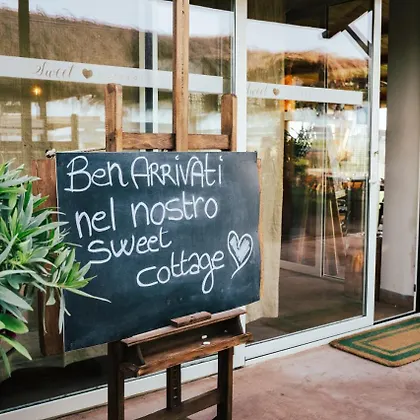 Sweet
Sweet
Ben ARRIVATi
nel nostro
sweet
cottage